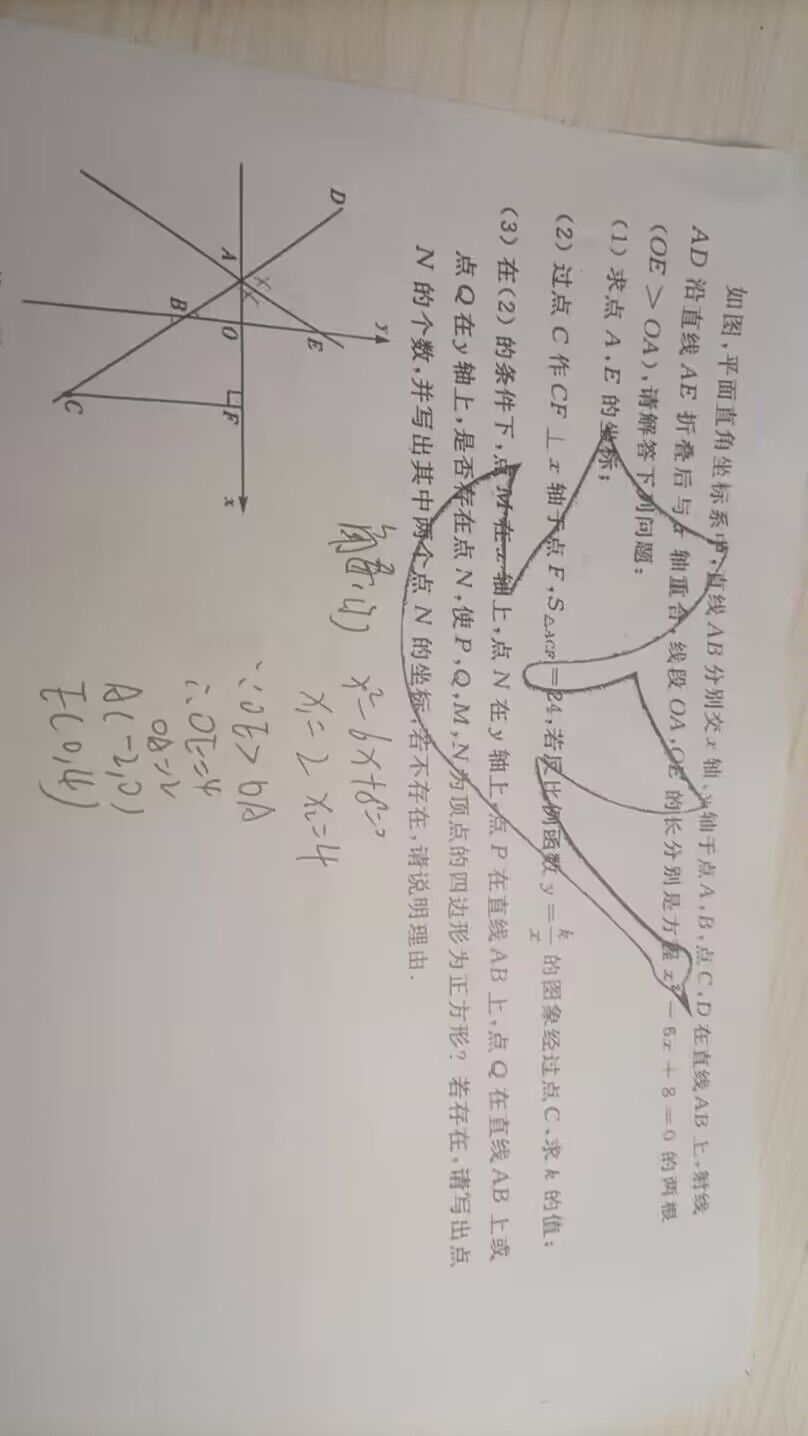 如图,平面直角坐标系中,直线AB分别交x轴、y轴于点A,B,点C,D在直线AB上,射线
AD沿直线AE折叠后与x轴重合,线段OA,OE的长分别是方程x²-6x+8=0的两根
(OE>OA),请解答下列问题:
(1)求点A,E的坐标;
(2)过点C作CF⊥x轴于点F,S△ACF=24,若反比例函数y=k/x的图象经过点C,求k的值;
(3)在(2)的条件下,点M在x轴上,点N在y轴上,点P在直线AB上,点Q在直线AB上或
点Q在y轴上,是否存在点N,使P,Q,M,N为顶点的四边形为正方形?若存在,请写出点
N的个数,并写出其中两个点N的坐标,若不存在,请说明理由.
D
A
B
O
E
y
C
F
x
(1) x²-6x+8=0
x₁=2 x₂=4
∵OE>OA
∴OE=4
OA=2
A(-2,0)
E(0,4)